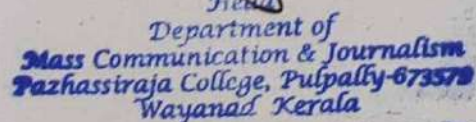 Head
Department of
Mass Communication & Journalism
Pazhassiraja College, Pulpally-673579
Wayanad Kerala